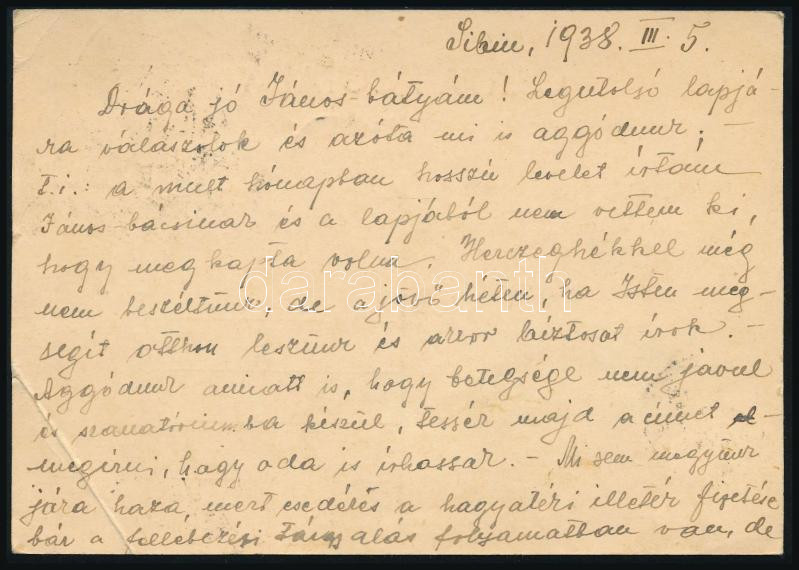 Sibiu, 1938. III. 5.
Drága jó János-bátyám! Legutolsó lapjá-
ra válaszolok és azóta mi is aggódunk. –
T. i.: a mult hónapban hosszú levelet írtam
János-bácsinak és a lapjából nem vettem ki,
hogy megkapta volna. Herczeghékkel még
nem beszéltünk, de a jövő héten, ha Isten meg-
segít otthon leszünk és akkor biztosat írok. –
Aggódunk amiatt is, hogy betegsége nem javul
és szanatóriumba készül, tessék majd a címet
megírni, hogy oda is írhassak. – Mi sem megyünk
jára haza, mert esedékes a hagyatéki illeték fizetése
bár a fellebbezési tárgyalás folyamatban van, de
darabanth